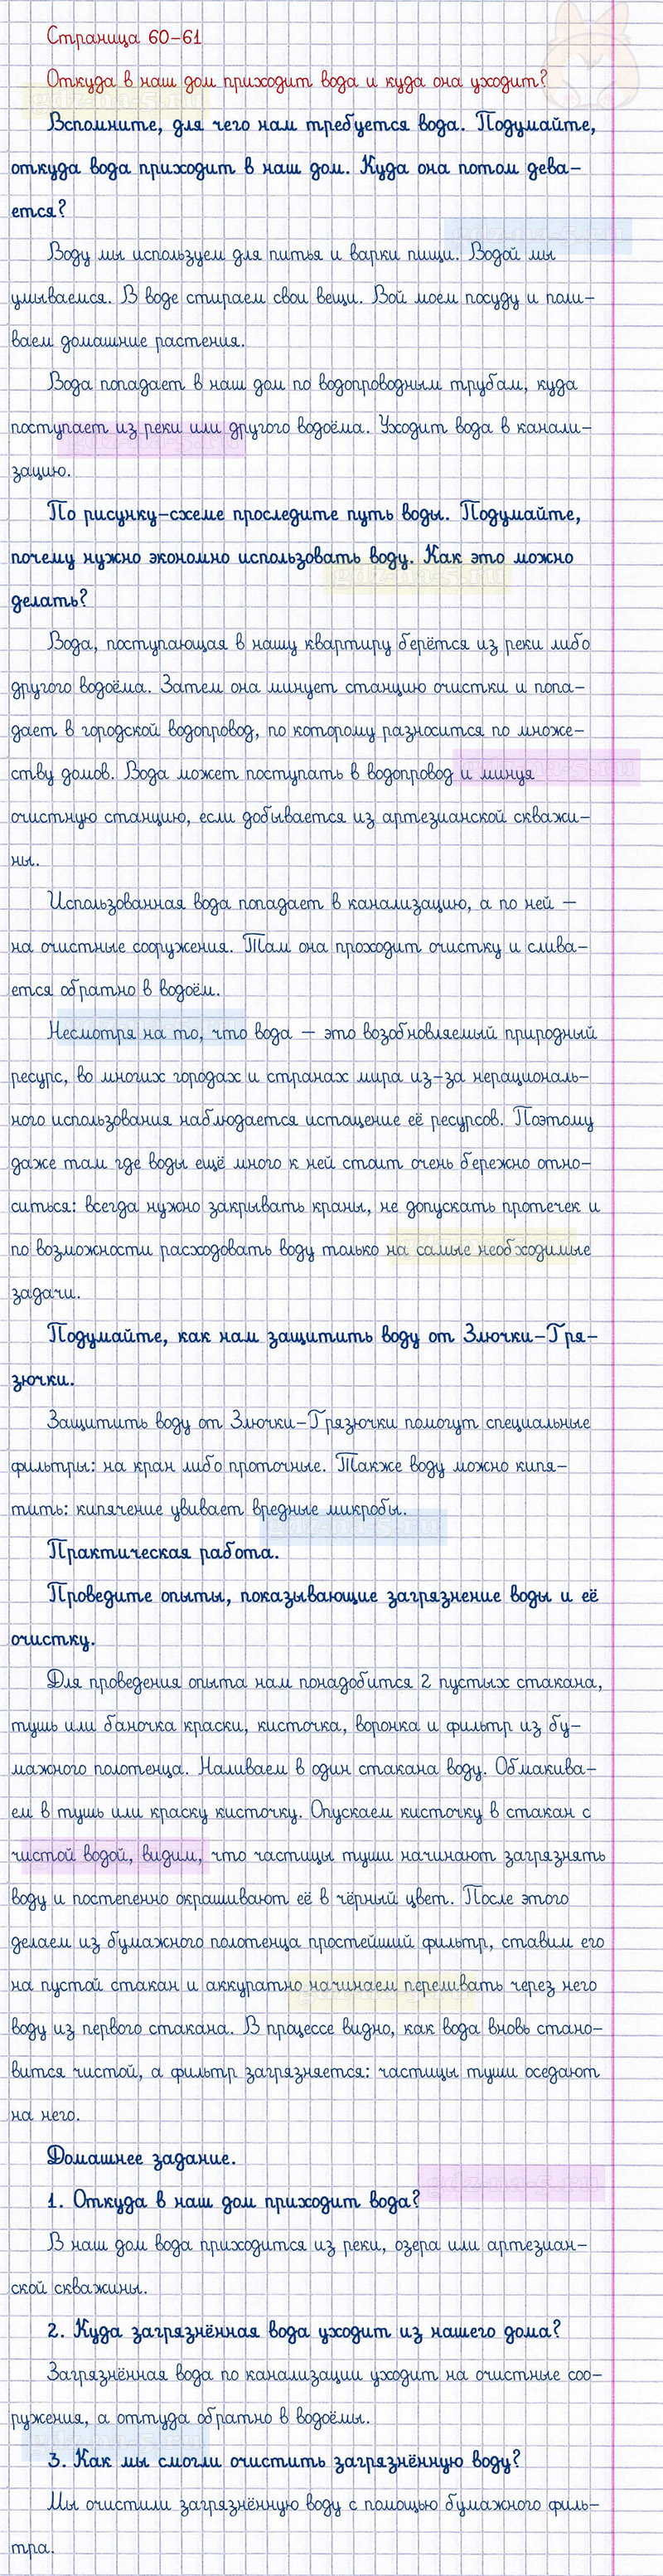 Страница 60-61
Откуда в наш дом приходит вода и куда она уходит?
Вспомните, для чего нам требуется вода. Подумайте,
откуда вода приходит в наш дом. Куда она потом дева-
ется?
Воду мы используем для питья и варки пищи. Водой мы
умываемся. В воде стираем свои вещи. Вой моем посуду и поли-
ваем домашние растения.
Вода попадает в наш дом по водопроводным трубам, куда
поступает из реки или другого водоёма. Уходит вода в канали-
зацию.
По рисунку-схеме проследите путь воды. Подумайте,
почему нужно экономно использовать воду. Как это можно
делать?
Вода, поступающая в нашу квартиру берётся из реки либо
другого водоёма. Затем она минует станцию очистки и попа-
дает в городской водопровод, по которому разносится по множе-
ству домов. Вода может поступать в водопровод и минуя
очистную станцию, если добывается из артезианской скважи-
ны.
Использованная вода попадает в канализацию, а по ней –
на очистные сооружения. Там она проходит очистку и слива-
ется обратно в водоём.
Несмотря на то, что вода – это возобновляемый природный
ресурс, во многих городах и странах мира из-за нерациональ-
ного использования наблюдается истощение её ресурсов. Поэтому
даже там где воды ещё много к ней стоит очень бережно отно-
ситься: всегда нужно закрывать краны, не допускать протечек и
по возможности расходовать воду только на самые необходимые
задачи.
Подумайте, как нам защитить воду от Злючки-Гря-
зючки.
Защитить воду от Злючки-Грязючки помогут специальные
фильтры: на кран либо проточные. Также воду можно кипя-
тить: кипячение увивает вредные микробы.
Практическая работа.
Проведите опыты, показывающие загрязнение воды и её
очистку.
Для проведения опыта нам понадобится 2 пустых стакана,
тушь или баночка краски, кисточка, воронка и фильтр из бу-
мажного полотенца. Наливаем в один стакана воду. Обмакива-
ем в тушь или краску кисточку. Опускаем кисточку в стакан с
чистой водой, видим, что частицы туши начинают загрязнять
воду и постепенно окрашивают её в чёрный цвет. После этого
делаем из бумажного полотенца простейший фильтр, ставим его
на пустой стакан и аккуратно начинаем переливать через него
воду из первого стакана. В процессе видно, как вода вновь стано-
вится чистой, а фильтр загрязняется: частицы туши оседают
на него.
Домашнее задание.
1. Откуда в наш дом приходит вода?
В наш дом вода приходится из реки, озера или артезиан-
ской скважины.
2. Куда загрязнённая вода уходит из нашего дома?
Загрязнённая вода по канализации уходит на очистные соо-
ружения, а оттуда обратно в водоёмы.
3. Как мы смогли очистить загрязнённую воду?
Мы очистили загрязнённую воду с помощью бумажного филь-
тра.